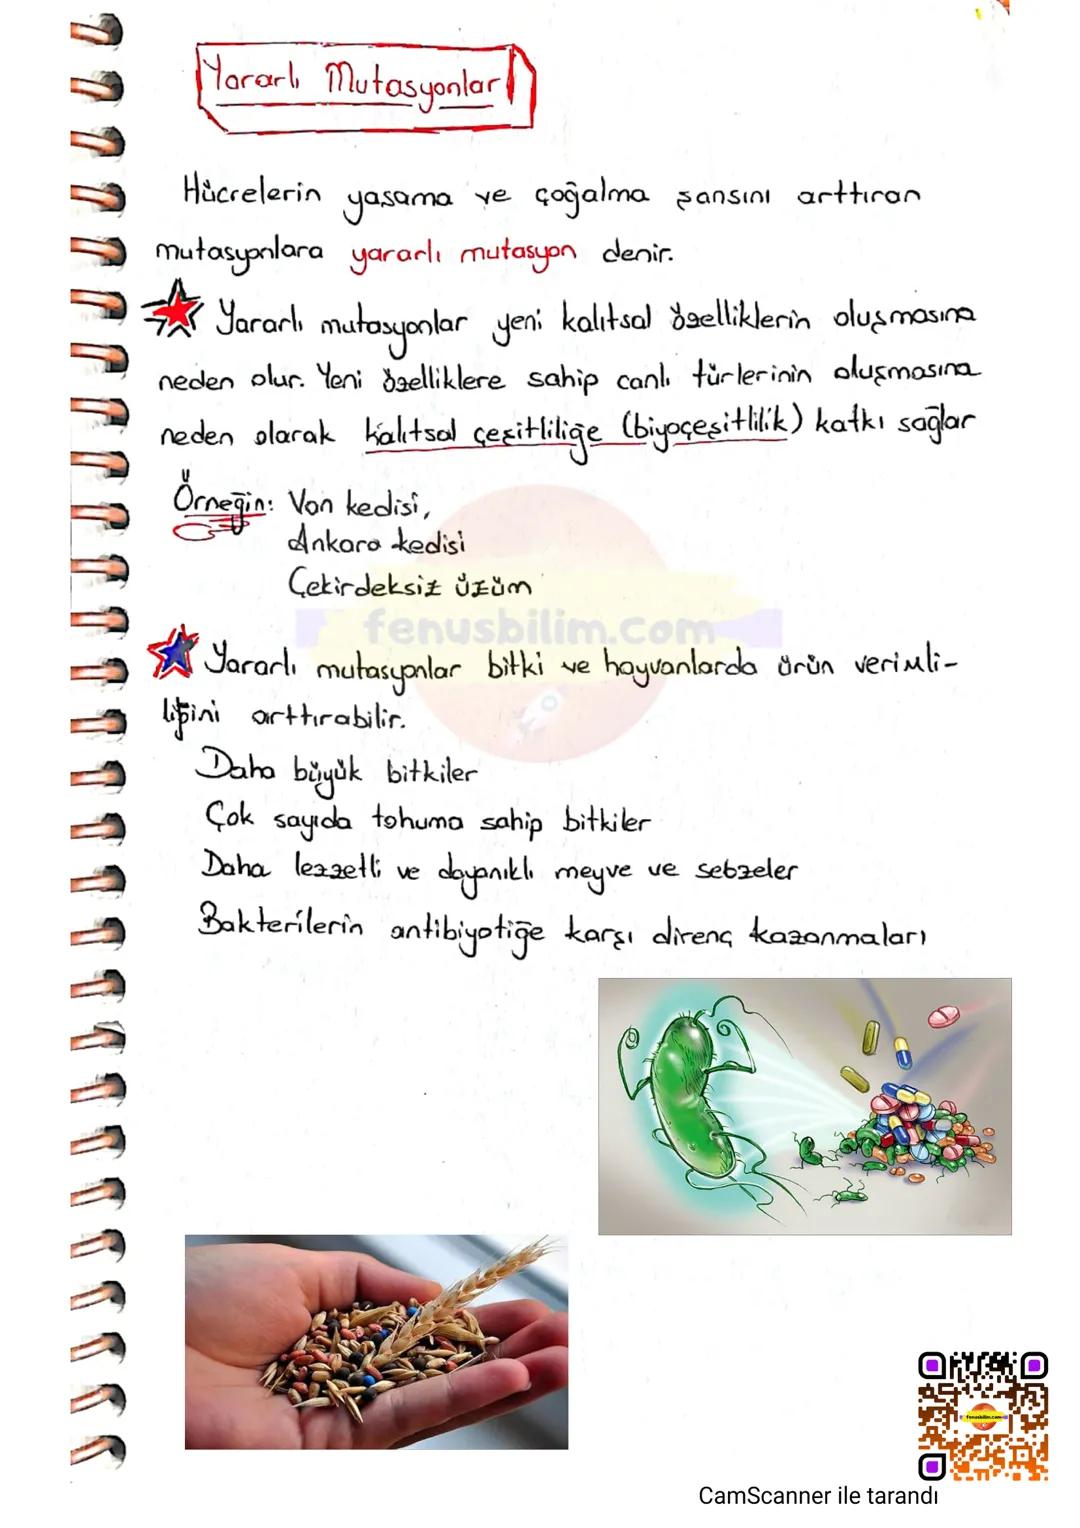 Yararlı Mutasyonlar
Hücrelerin yaşama ve çoğalma şansını arttıran
mutasyonlara yararlı mutasyon denir.
Yararlı mutasyonlar yeni kalıtsal özelliklerin oluşmasına
neden olur. Yeni özelliklere sahip canlı türlerinin oluşmasına
neden olarak kalıtsal çeşitliliğe (biyoçeşitlilik) katkı sağlar
Örneğin: Van kedisi,
Ankara kedisi
Çekirdeksiz üzüm
fenusbilim.com
Yararlı mutasyonlar bitki ve hayvanlarda ürün verimli-
liğini arttırabilir.
Daha büyük bitkiler
Çok sayıda tohuma sahip bitkiler
Daha lezzetli ve dayanıklı meyve ve sebzeler
Bakterilerin antibiyotiğe karşı direnç kazanmaları
fenusbilim.com
CamScanner ile tarandı